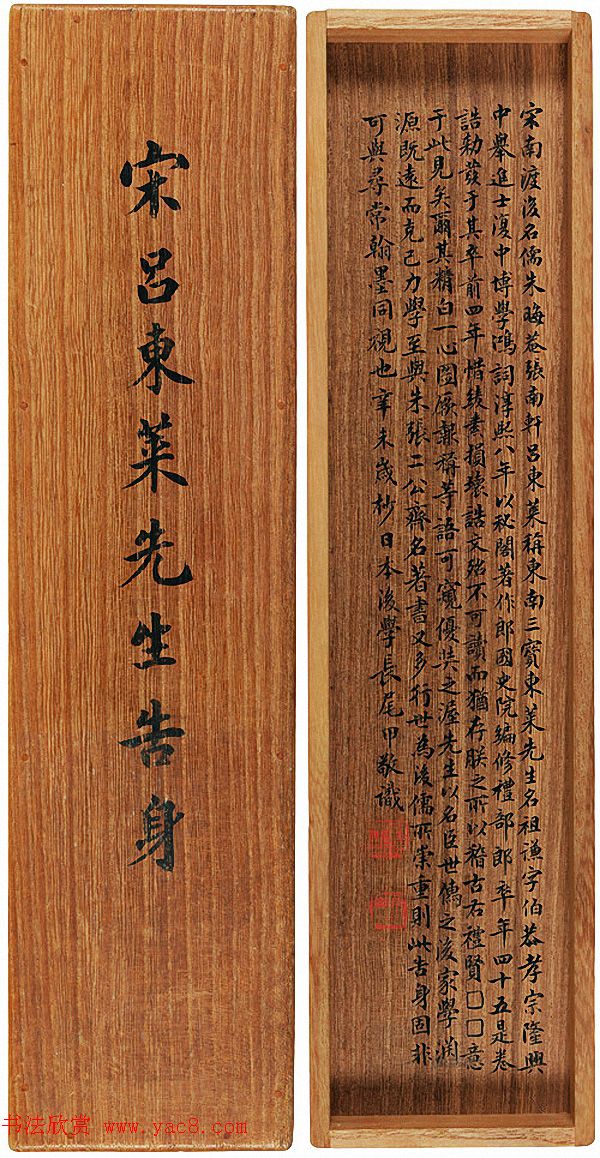 宋呂東萊先生告身
宋南渡後名儒朱晦菴張南軒呂東萊稱東南三寶東萊先生名祖謙字伯恭孝宗隆興
中舉進士復中博學鴻詞淳熙八年以秘閣著作郎國史院編修禮部郎卒年四十五是卷
誥勅發于其卒前四年惜綾素損壞誥文殆不可讀而猶存朕之所以稽古右禮賢□□意
于此見矣爾其精白一心圖厥報稱等語可窺優奘之渥先生以名臣世儒之後家學淵
源既遠而克己力學至與朱張二公齊名著書又多行世為後儒所崇重則此告身固非
可與尋常翰墨同視也辛未歲杪日本後學長尾甲敬識
书法欣赏 www.yac8.com